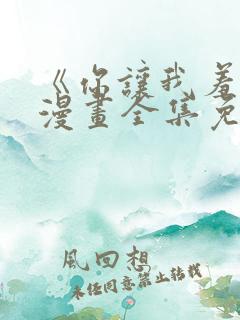 《你讓我羞
漫畫全集免
風回想
未任同意禁止转载